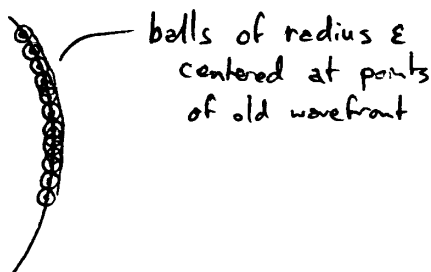 balls of radius ε
centered at points
of old wavefront